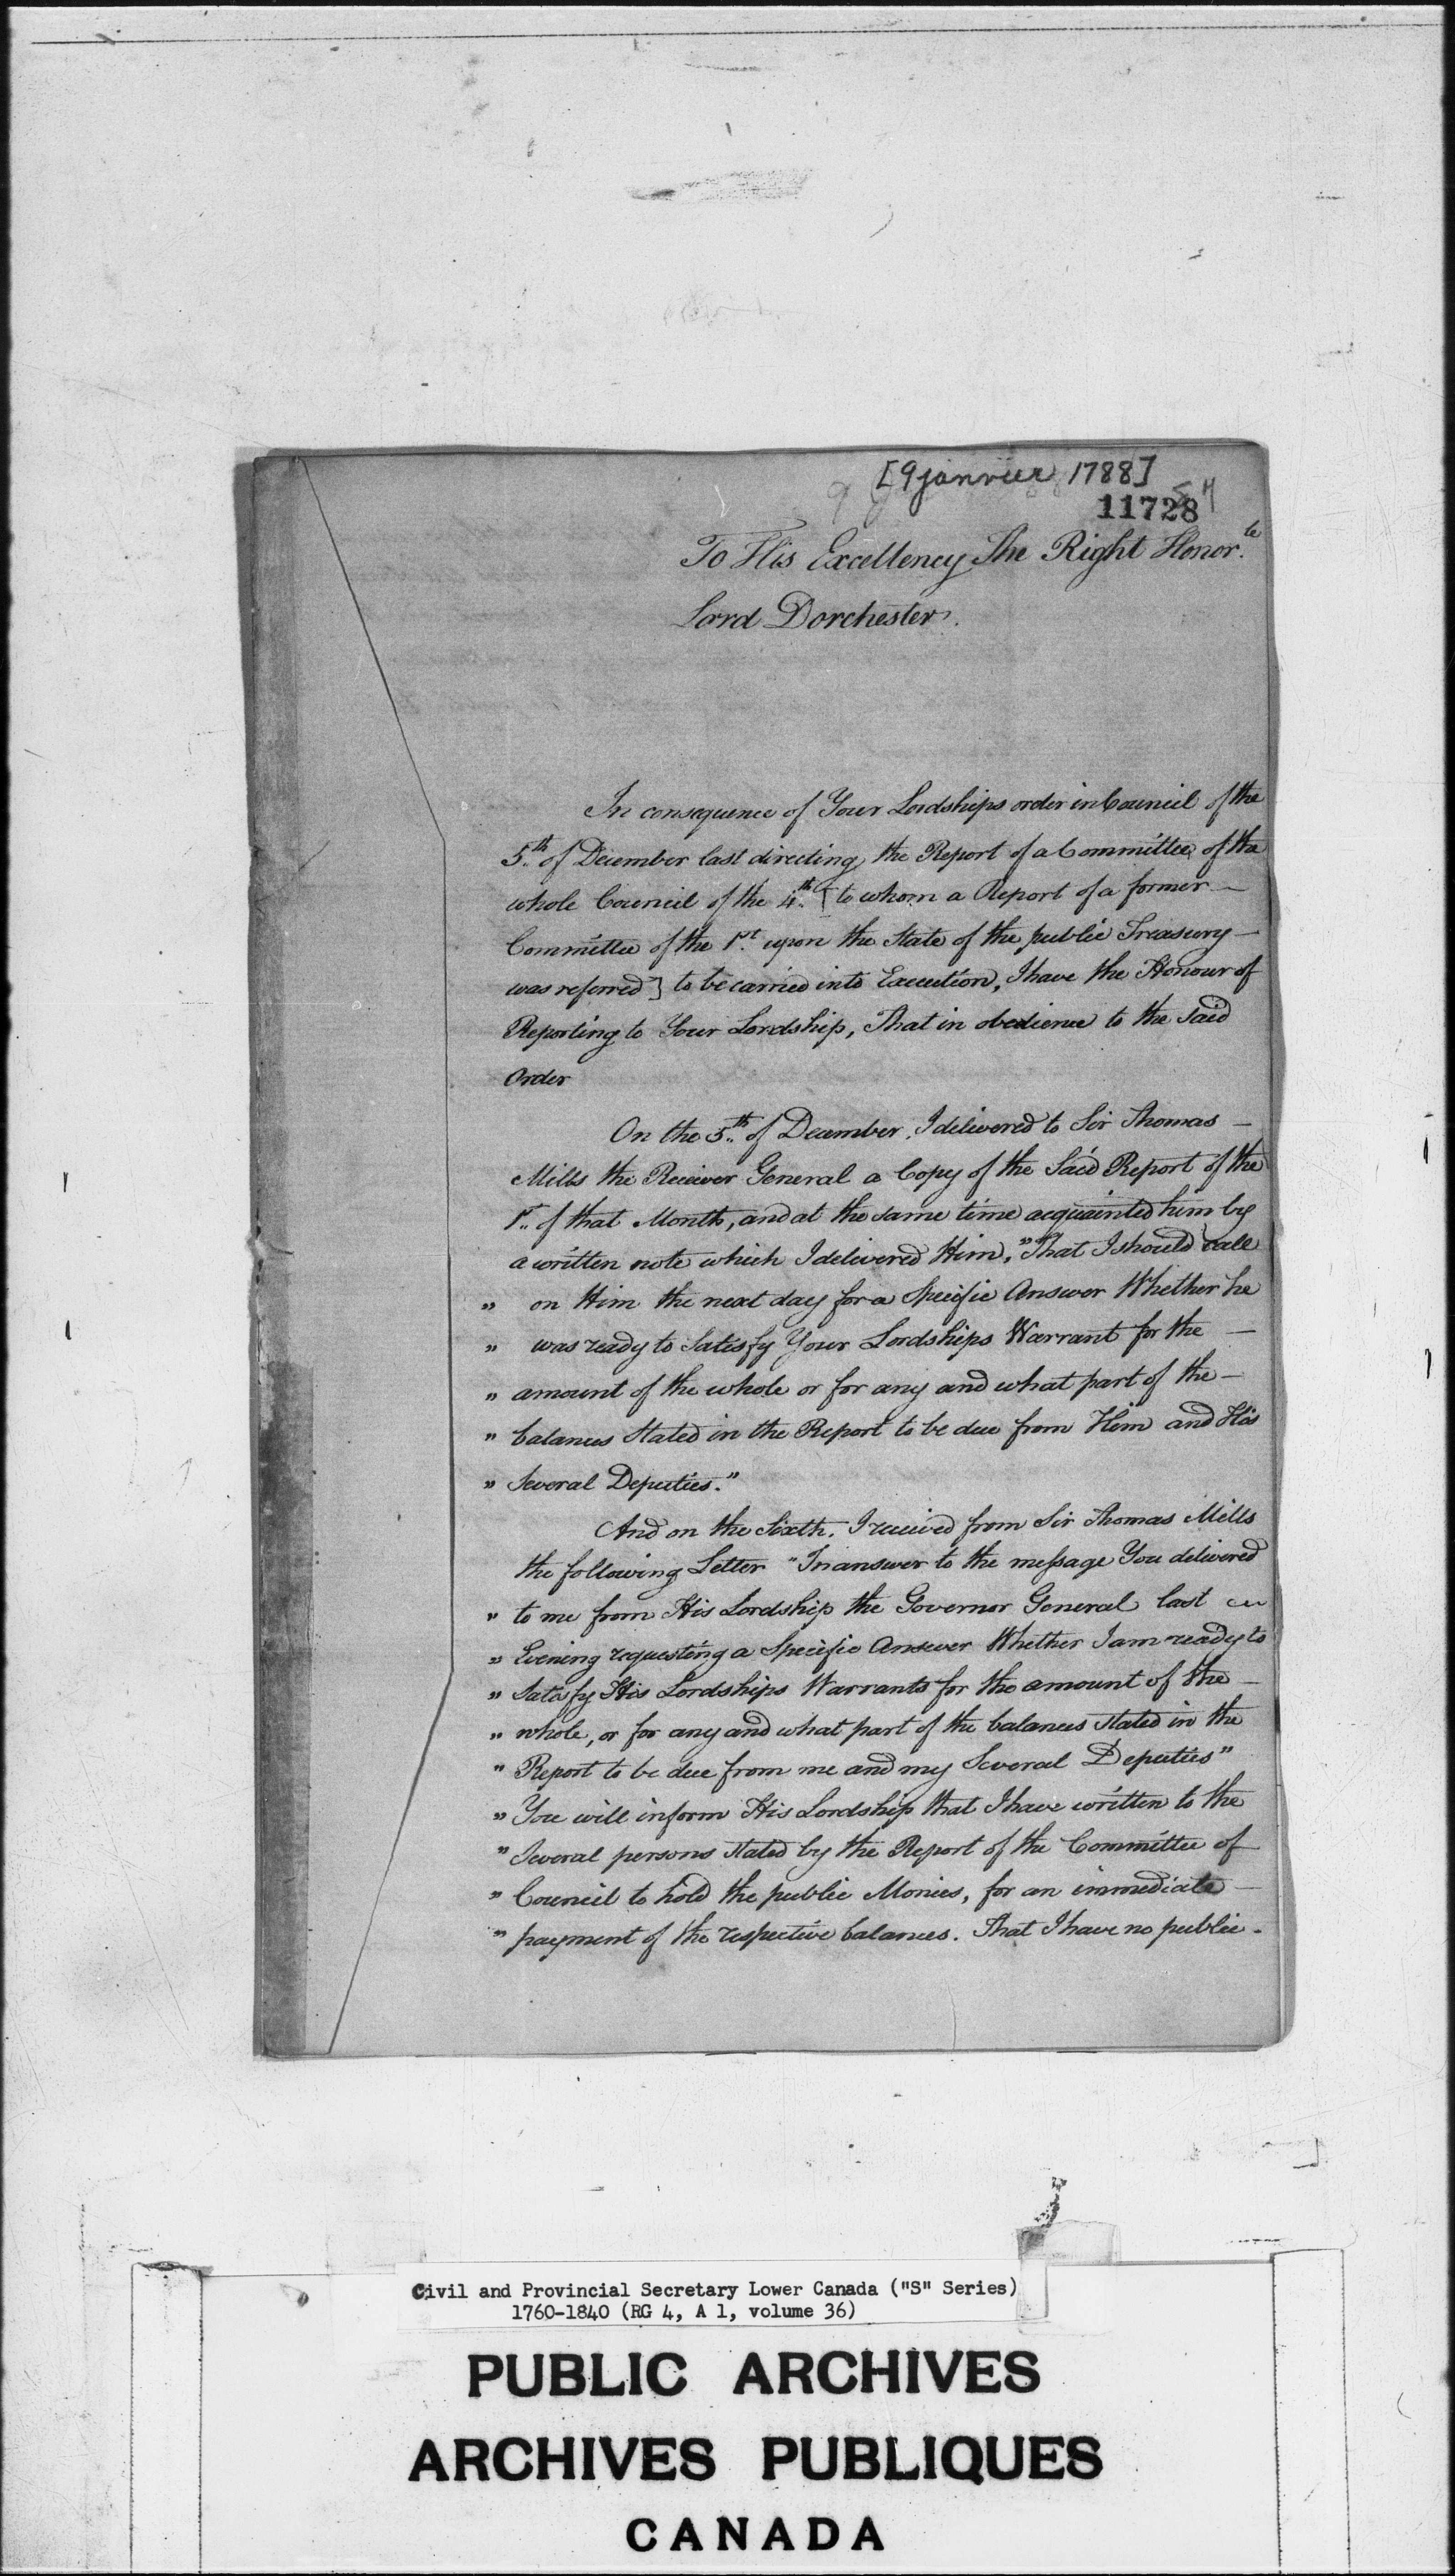 [9 janvier 1788]
11728
To His Excellency The Right Honor.le
Lord Dorchester.
In consequence of Your Lordships order in Council of the
5.th of December last directing the Report of a Committee of the
whole Council of the 4.th [to whom a Report of a former —
Committee of the 1.st upon the State of the public Treasury —
was referred] to be carried into Execution, I have the Honour of
Reporting to Your Lordship, That in obedience to the Said
Order
On the 5.th of December. I delivered to Sir Thomas —
Mills the Receiver General a Copy of the Said Report of the
1.st of that Month, and at the same time acquainted him by
a written note which I delivered Him, "That I should call
" on Him the next day for a Specific Answer Whether he
" was ready to Satisfy Your Lordships Warrant for the —
" amount of the whole or for any and what part of the —
" balances Stated in the Report to be due from Him and His
" Several Deputies."
And on the Sixth. I received from Sir Thomas Mills
the following Letter "In answer to the message You delivered
" to me from His Lordship the Governor General last
" Evening requesting a Specific Answer Whether I am ready to
" Satisfy His Lordships Warrants for the amount of the —
" whole, or for any and what part of the balances stated in the
" Report to be due from me and my Several Deputies"
" You will inform His Lordship that I have written to the
" Several persons stated by the Report of the Committee of
" Council to hold the public Monies, for an immediate —
" payment of the respective balances. That I have no public -
Civil and Provincial Secretary Lower Canada ("S" Series)
1760-1840 (RG 4, A 1, volume 36)
PUBLIC ARCHIVES
ARCHIVES PUBLIQUES
CANADA